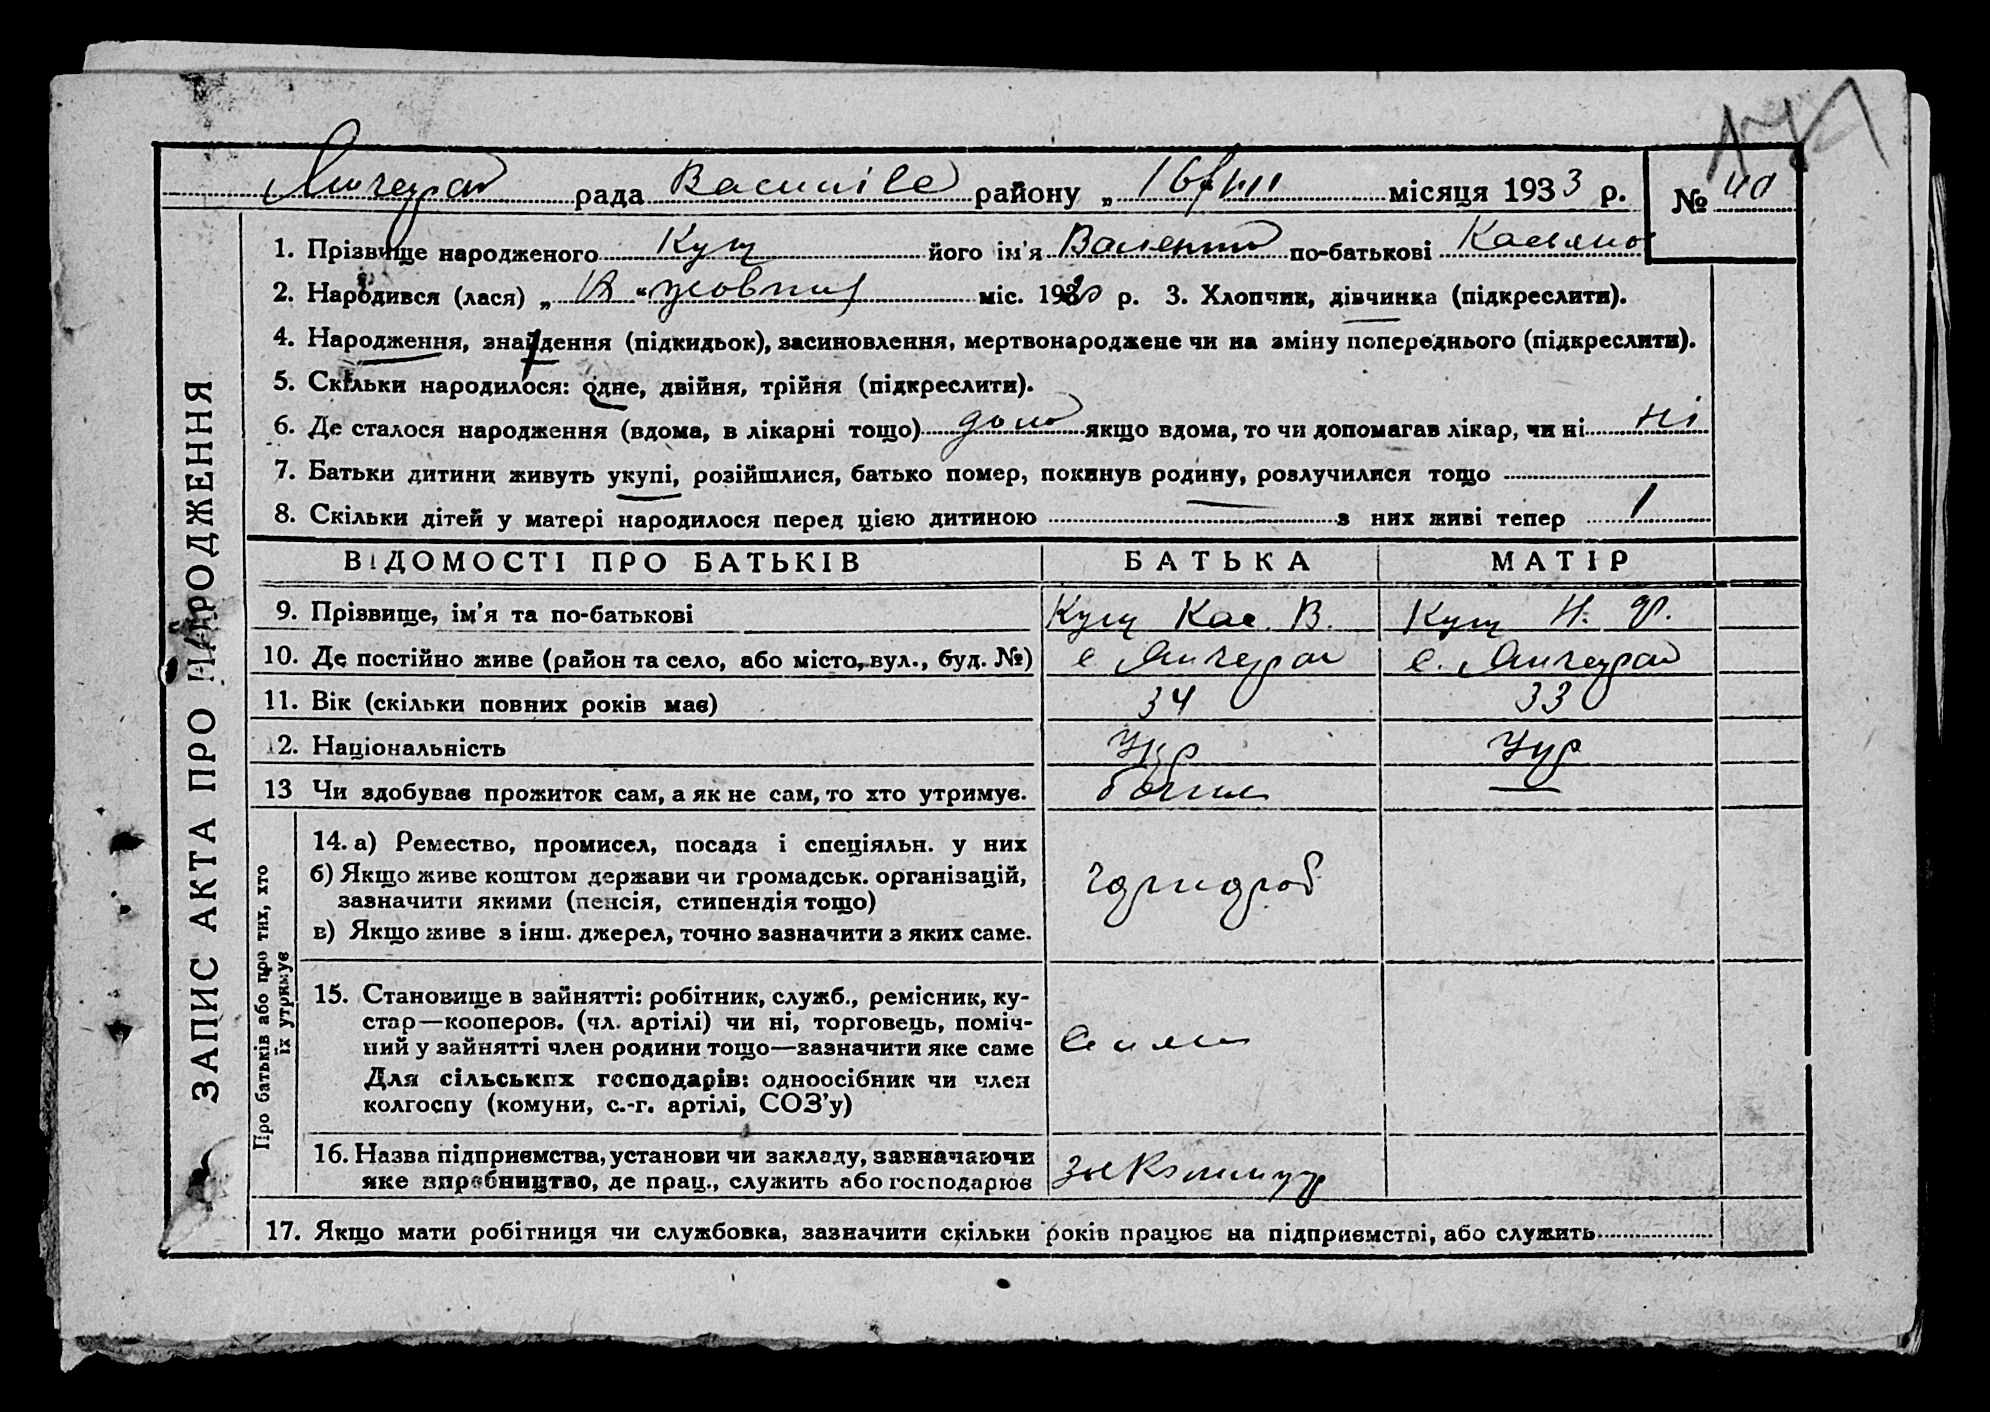 Янчекрак рада Василівс району „ 16/VIII місяця 1933 р. № 40
ЗАПИС АКТА ПРО НАРОДЖЕННЯ
1. Прізвище народженого Кущ його ім'я Валентина по-батькові Касьянов
2. Народився (лася) „ “ жовтня міс. 1930 р. 3. Хлопчик, дівчинка (підкреслити).
4. Народження, знайдення (підкидьок), засиновлення, мертвонароджене чи на зміну попереднього (підкреслити).
5. Скільки народилося: одне, двійня, трійня (підкреслити).
6. Де сталося народження (вдома, в лікарні тощо) дома якщо вдома, то чи допомагав лікар, чи ні ні
7. Батьки дитини живуть укупі, розійшлися, батько помер, покинув родину, розлучилися тощо
8. Скільки дітей у матері народилося перед цією дитиною з них живі тепер 1
ВІДОМОСТІ ПРО БАТЬКІВ БАТЬКА МАТІР
9. Прізвище, ім'я та по-батькові Кущ Кас. В. Кущ Н. Ф.
10. Де постійно живе (район та село, або місто, вул., буд. №) с Янчекрак с. Янчекрак
11. Вік (скільки повних років має) 34 33
12. Національність Укр Укр
13 Чи здобував прожиток сам, а як не сам, то хто утримує. —
Про батьків або про тих, хто
їх утримує
14. а) Ремество, промисел, посада і спеціяльн. у них
б) Якщо живе коштом держави чи громадськ. організацій,
зазначити якими (пенсія, стипендія тощо)
в) Якщо живе з інш. джерел, точно зазначити з яких саме.
15. Становище в зайнятті: робітник, служб., ремісник, ку-
стар—кооперов. (чл. артілі) чи ні, торговець, поміч-
ний у зайнятті член родини тощо—зазначити яке саме
Для сільських господарів: одноосібник чи член
колгоспу (комуни, с.-г. артілі, СОЗ'у)
16. Назва підприємства, установи чи закладу, зазначаючи
яке виробництво, де прац., служить або господарює
17. Якщо мати робітниця чи службовка, зазначити скільки років працює на підприємстві, або служить